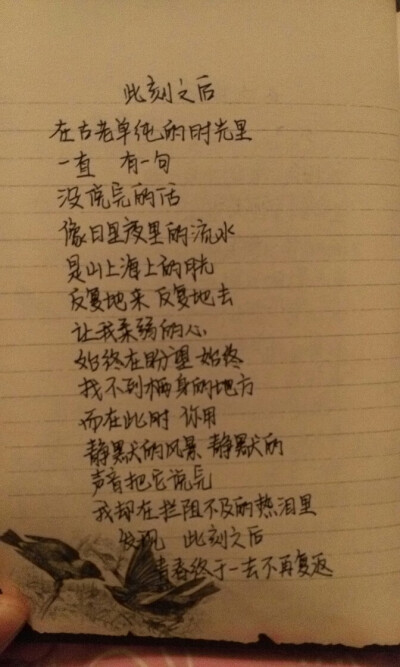 此刻之后
在古老单纯的时光里
一直 有一句
没说完的话
像日里夜里的流水
是山上海上的月光
反复地来 反复地去
让我柔弱的心
始终在盼望 始终
找不到栖身的地方
而在此时 你用
静默的风景 静默的
声音把它说完
我却在拦阻不及的热泪里
发现 此刻之后
青春终于一去不再复返